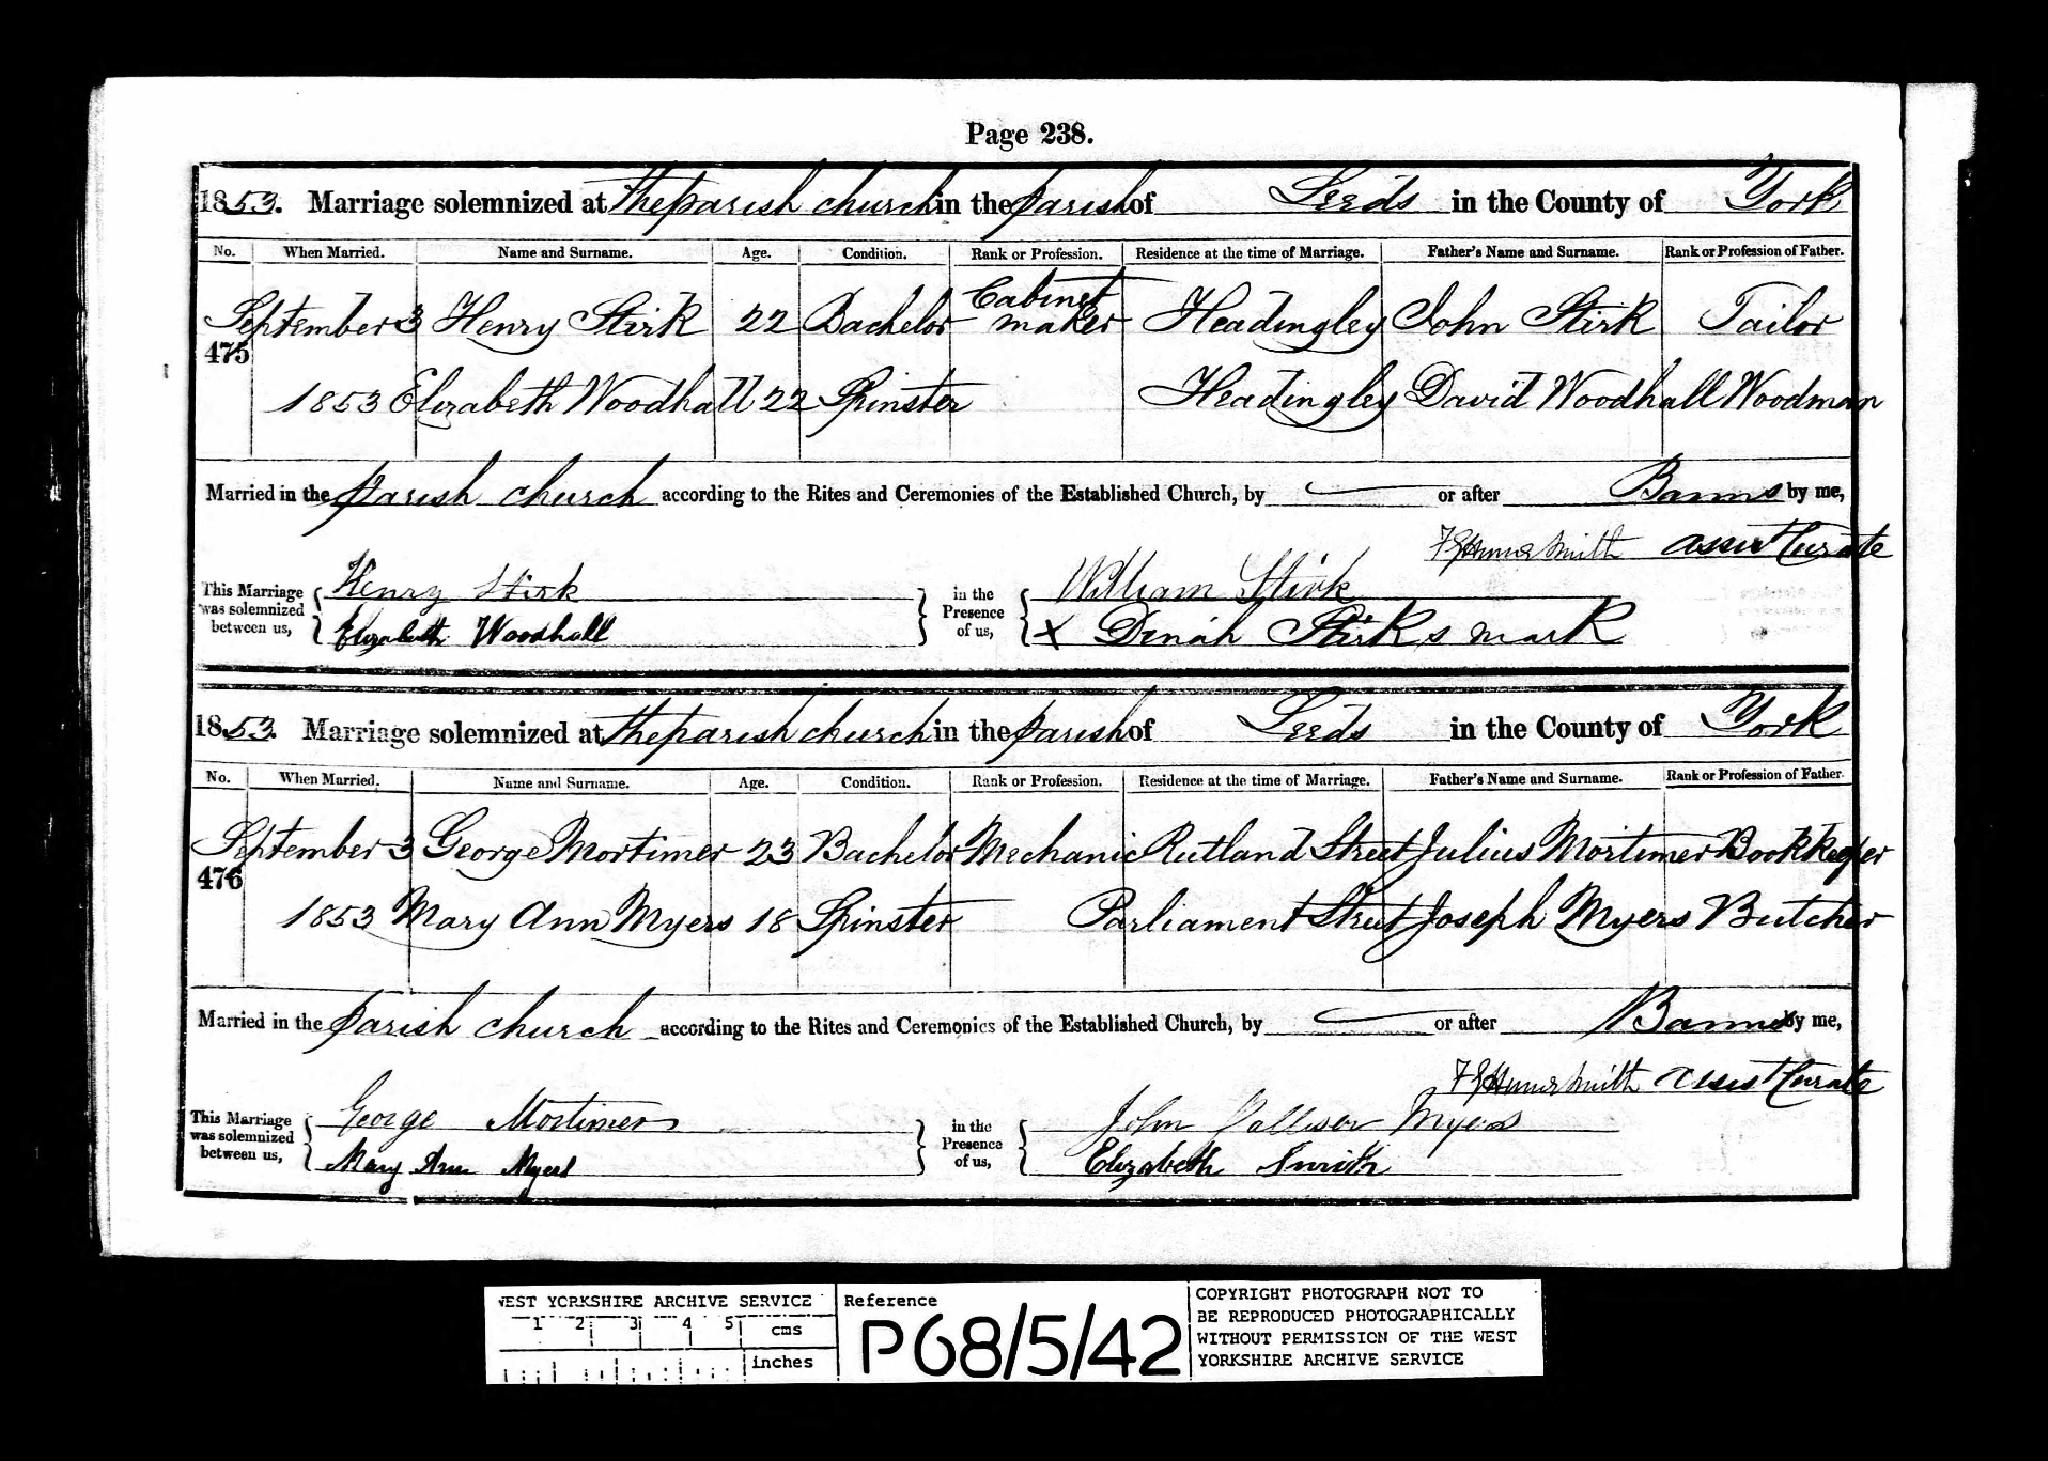 Page 238.
1853. Marriage solemnized at the parish church in the parish of Leeds in the County of York
No. When Married. Name and Surname. Age. Condition. Rank or Profession. Residence at the time of Marriage. Father's Name and Surname. Rank or Profession of Father.
475 September 3 Henry Stirk 22 Bachelor Cabinet maker Headingley John Stirk Tailor
1853 Elizabeth Woodhall 22 Spinster Headingley David Woodhall Woodman
Married in the parish church according to the Rites and Ceremonies of the Established Church, by or after Banns by me,
Smith assist Curate
This Marriage was solemnized between us, Henry Stirk in the Presence of us, William Stirk
Elizabeth Woodhall X Dinah Stirks mark
1853. Marriage solemnized at the parish church in the parish of Leeds in the County of York
No. When Married. Name and Surname. Age. Condition. Rank or Profession. Residence at the time of Marriage. Father's Name and Surname. Rank or Profession of Father.
476 September 3 George Mortimer 23 Bachelor Mechanic Rutland Street Julius Mortimer Bookkeeper
1853 Mary Ann Myers 18 Spinster Parliament Street Joseph Myers Butcher
Married in the parish church according to the Rites and Ceremonies of the Established Church, by or after Banns by me,
Smith assist Curate
This Marriage was solemnized between us, George Mortimer in the Presence of us, John Myers
Mary Ann Myers Elizabeth Smith
WEST YORKSHIRE ARCHIVE SERVICE
1 2 3 4 5 cms
inches
Reference
P68/5/42
COPYRIGHT PHOTOGRAPH NOT TO
BE REPRODUCED PHOTOGRAPHICALLY
WITHOUT PERMISSION OF THE WEST
YORKSHIRE ARCHIVE SERVICE